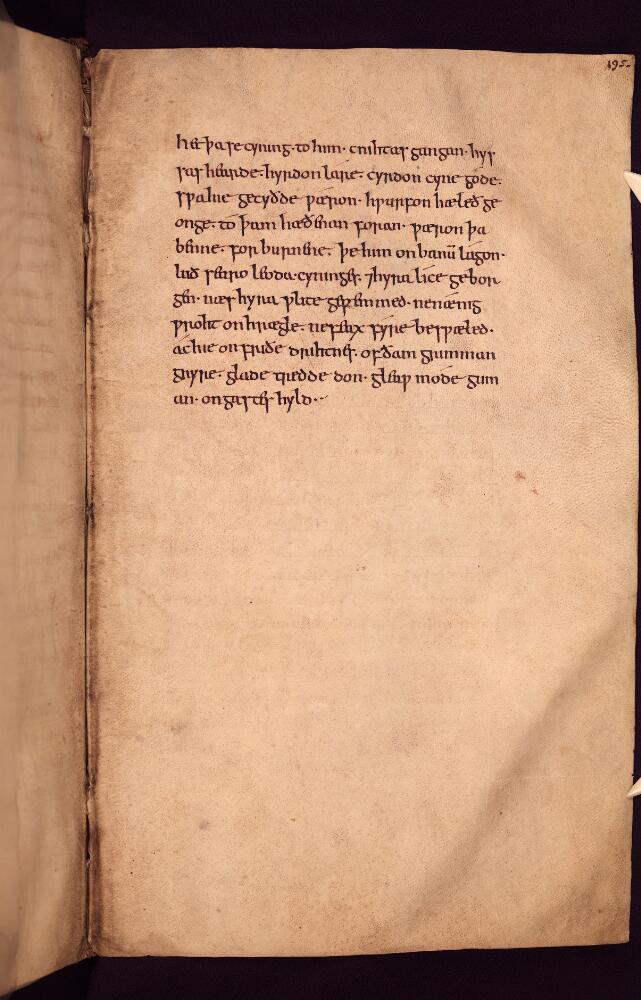 195.
het þa se cyning. to him. cnihtas gangan. hys
sas hearde. hyrdon lare. cyrdon cyne gode.
swa hie gecydde wæron. hwurfon hæleð ge
onge. to þam hæðenan foran. wæron þa
bende. forburnene. þe him on banū lagon.
lað searo leoda cyninges. ⁊hyra lice gebor
gen. næs hyra wlite gewemmed. ne nænig
wroht on hrægle. ne feax fyre beswæled.
ac hie on friðe drihtnes. of ðam grimman
gryre. glade treddedon. gleaw mode gum
an. on gastes hyld.